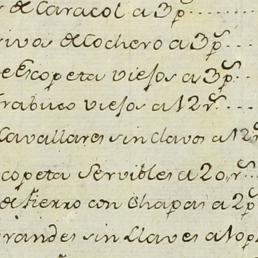 de Caracol a 3 p.s
rivos de Cochero a 3 p.s
de Escopeta viejos a 3 p.s
Trabuco viejos a 12 r.s
Cavallares sin clavos a 12 r.s
copeta Servibles a 20 r.s
de fierro con Chapas a 2 p.s
grandes sin Llaves a 10 p.s